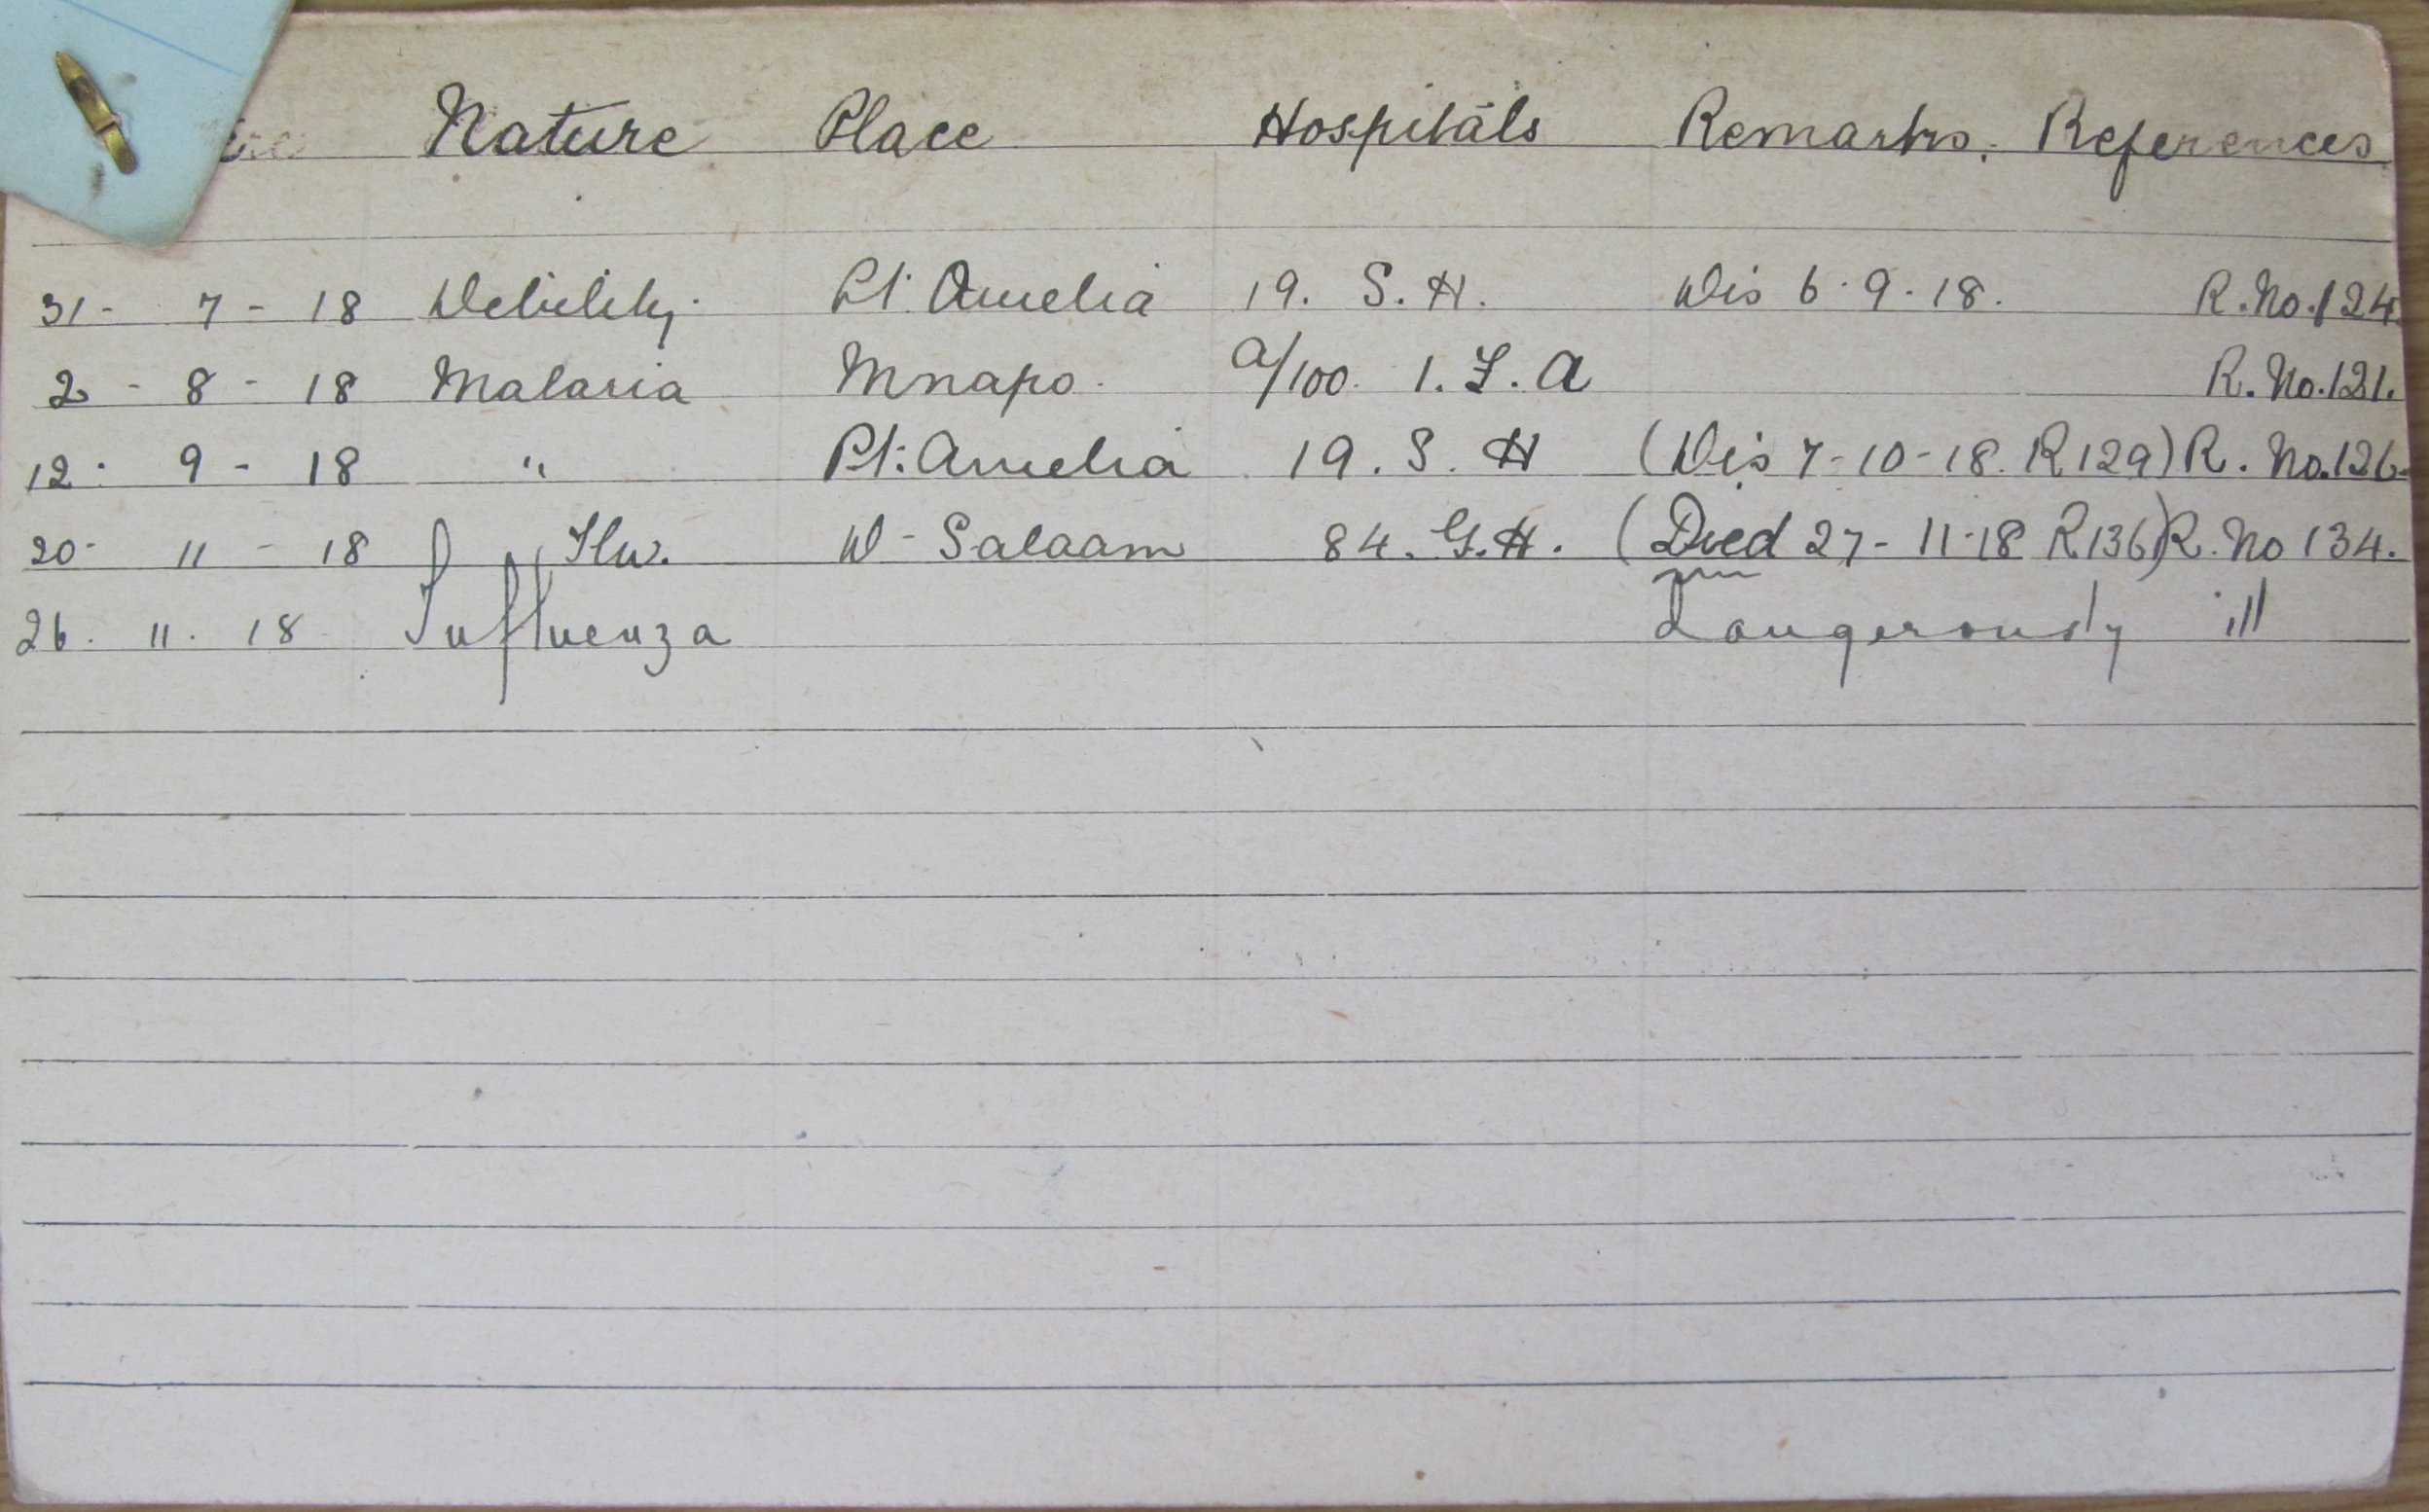 Nature Place Hospitals Remarks. References
31 - 7 - 18 Debility. Pt. Amelia 19. S. H. Dis 6.9.18. R.No.124.
2 - 8 - 18 Malaria Mnapo. a/100. I. F. A R.No.121.
12: 9 - 18 " Pt. Amelia 19. S. H (Dis 7-10-18. R129) R. No.126.
20- 11 - 18 D - Salaam 84. G.H. (Died 27-11-18 R136) R.No 134.
26. 11. 18 Influenza Dangerously ill